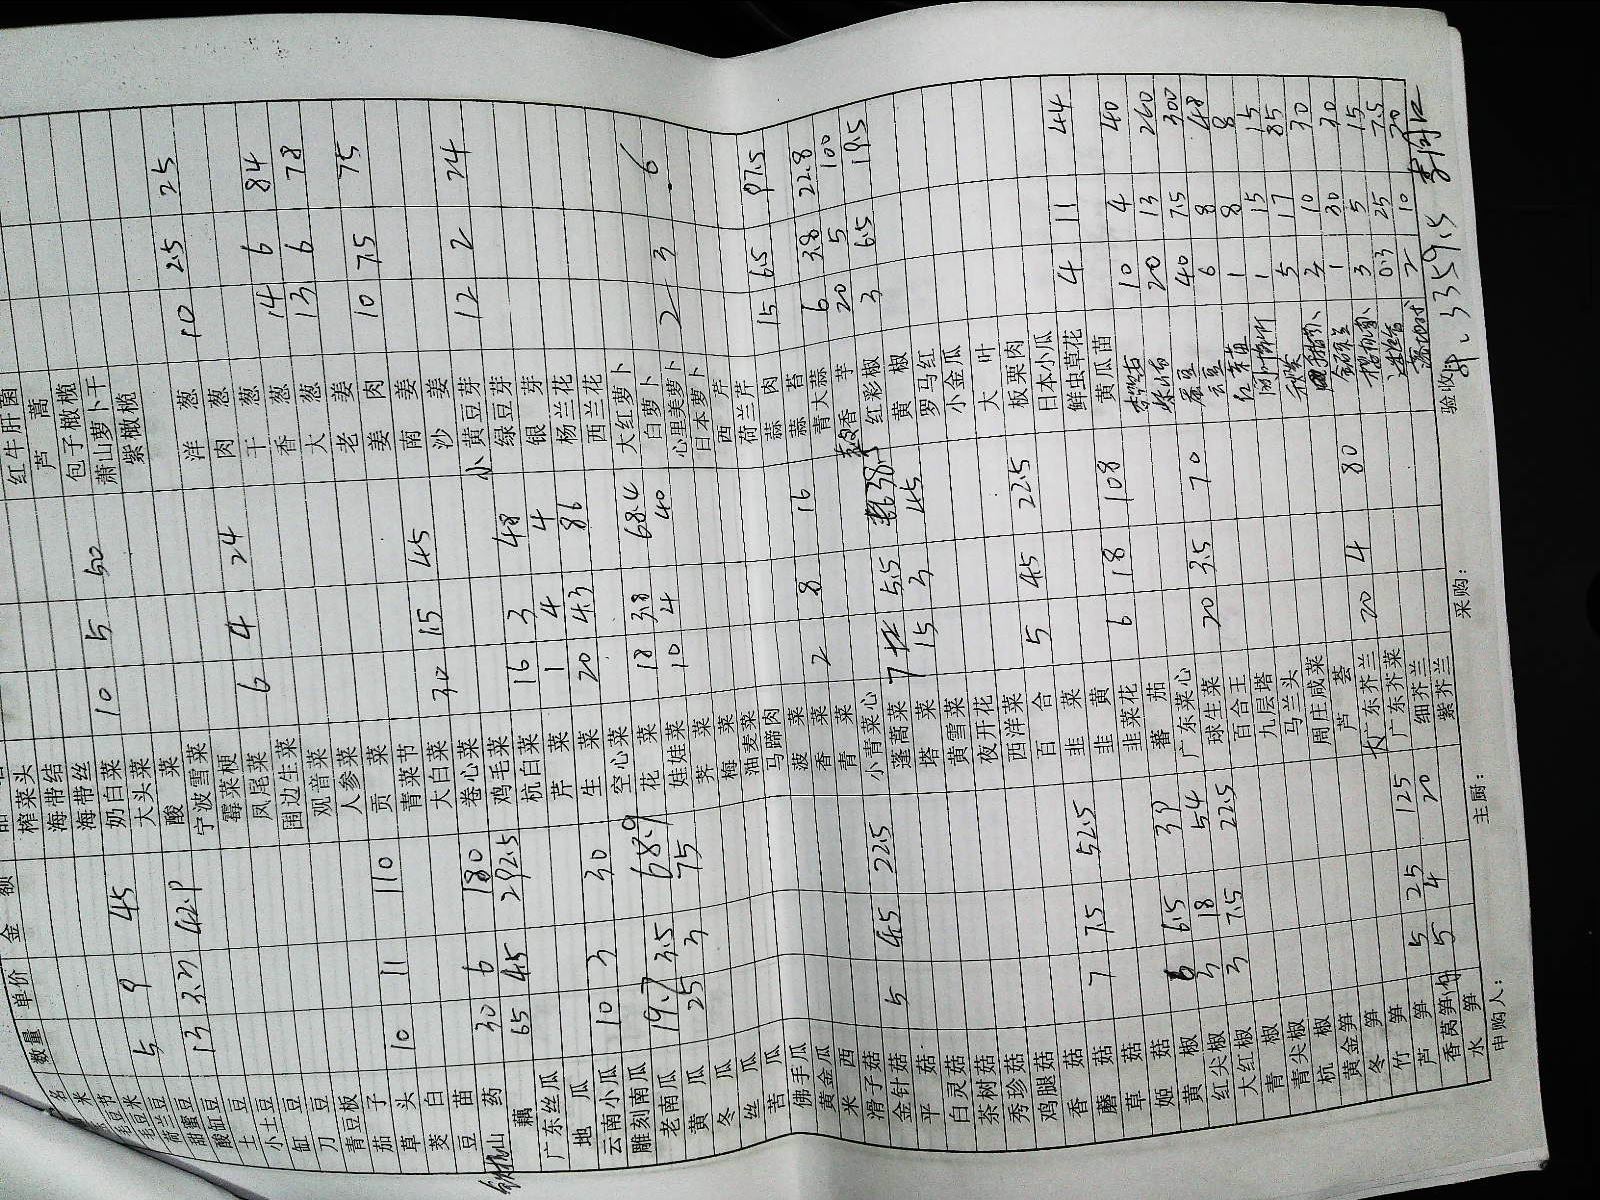 品名 数量 单价 金额
米
毛豆节
毛豆米 5 9 45
荷兰豆
甜蜜豆 13 3.3 42.9
酸豇豆
土豆
小土豆
豇豆
刀豆
青豆板
茄子
草头 10 11 110
茭白
豆苗
铁棍山药 30 6 180
藕 65 4.5 292.5
广东丝瓜
地瓜
云南小瓜 10 3 30
雕刻南瓜
老南瓜 19.7 3.5 68.9
黄瓜 25 3 75
冬瓜
丝瓜
苦瓜
佛手瓜
黄金瓜
米西
滑子菇
金针菇 5 4.5 22.5
平菇
白灵菇
茶树菇
秀珍菇
鸡腿菇
香菇
蘑菇 7 7.5 52.5
草菇
姬菇
黄椒 6 6.5 39
红尖椒 3 18 54
大红椒 3 7.5 22.5
青椒
青尖椒
杭椒
黄金笋
冬笋
竹笋
芦笋 5 25 125
香莴笋 5 4 20
水笋
申购人：
榨菜头
海带结
海带丝
奶白菜 10 5 50
大头菜
酸菜
宁波雪菜
霉菜梗
凤尾菜 6 4 24
围边生菜
观音菜
人参菜
贡菜
青菜节
大白菜 30 1.5 45
卷心菜
鸡毛菜
杭白菜 16 3 48
芹菜 1 4 4
生菜 20 4.3 86
空心菜
花菜 18 3.8 68.4
娃娃菜 10 4 40
荠菜
梅菜
油麦菜
马蹄肉
菠菜
香菜 2 8 16
青菜
小青菜心
蓬蒿菜 7 5.5 38.5
塔菜 15 3 45
黄雪菜
夜开花
西洋菜
百合 5 4.5 22.5
韭菜
韭黄
韭菜花 6 18 108
番茄
广东菜心
球生菜 20 3.5 70
百合王
九层塔
马兰头
周庄咸菜
芦荟
大广东芥兰 20 4 80
广东芥菜
细芥兰
紫芥兰
主厨：
采购：
红牛肝菌
芦蒿
包子橄榄
萧山萝卜干
紫橄榄
洋葱 10 2.5 25
肉葱
干葱
香葱 14 6 84
大葱 13 6 78
老姜
姜肉 10 7.5 75
南姜
沙姜
小黄豆芽 12 2 24
绿豆芽
银芽
杨兰花
西兰花
大红萝卜
白萝卜
心里美萝卜 2 3 6
日本萝卜
西芹
荷兰芹
蒜肉 15 6.5 97.5
蒜苔
青大蒜 6 3.8 22.8
香芋 20 5 100
红彩椒 3 6.5 19.5
黄椒
罗马红
小金瓜
大叶
板栗肉
日本小瓜
鲜虫草花 4 11 44
黄瓜苗
10 4 40
20 13 260
蚕豆 40 7.5 300
6 8 48
红菜苗 1 8 8
1 15 15
秋葵 5 17 85
10 30
1 30 30
3 5 15
0.3 25 7.5
2 10 20
验收：
3359.5